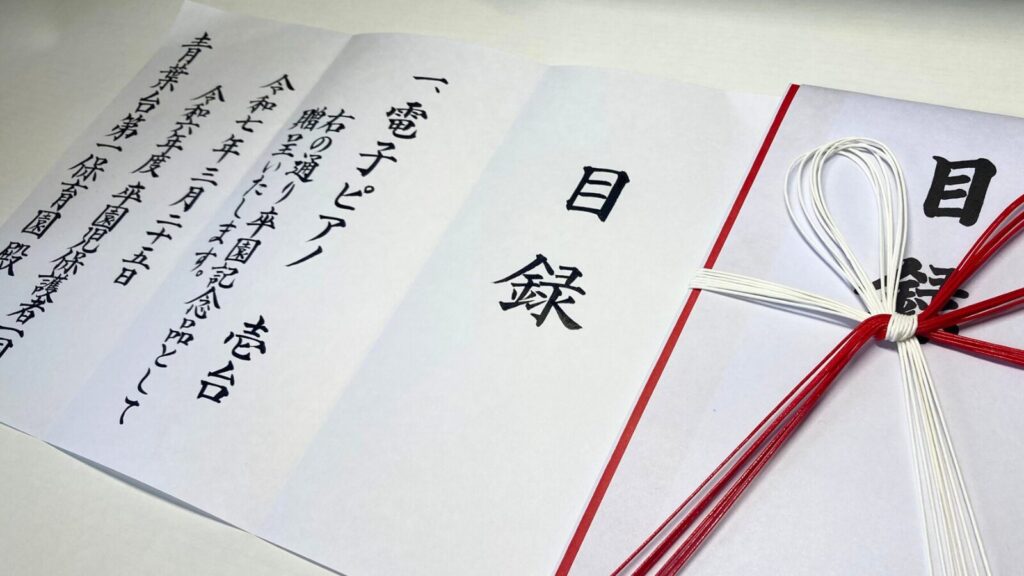 目録
目録
一、電子ピアノ 壱台
右の通り卒園記念品として
贈呈いたします。
令和七年三月二十五日
令和六年度 卒園児保護者一同
青葉台第一保育園 殿